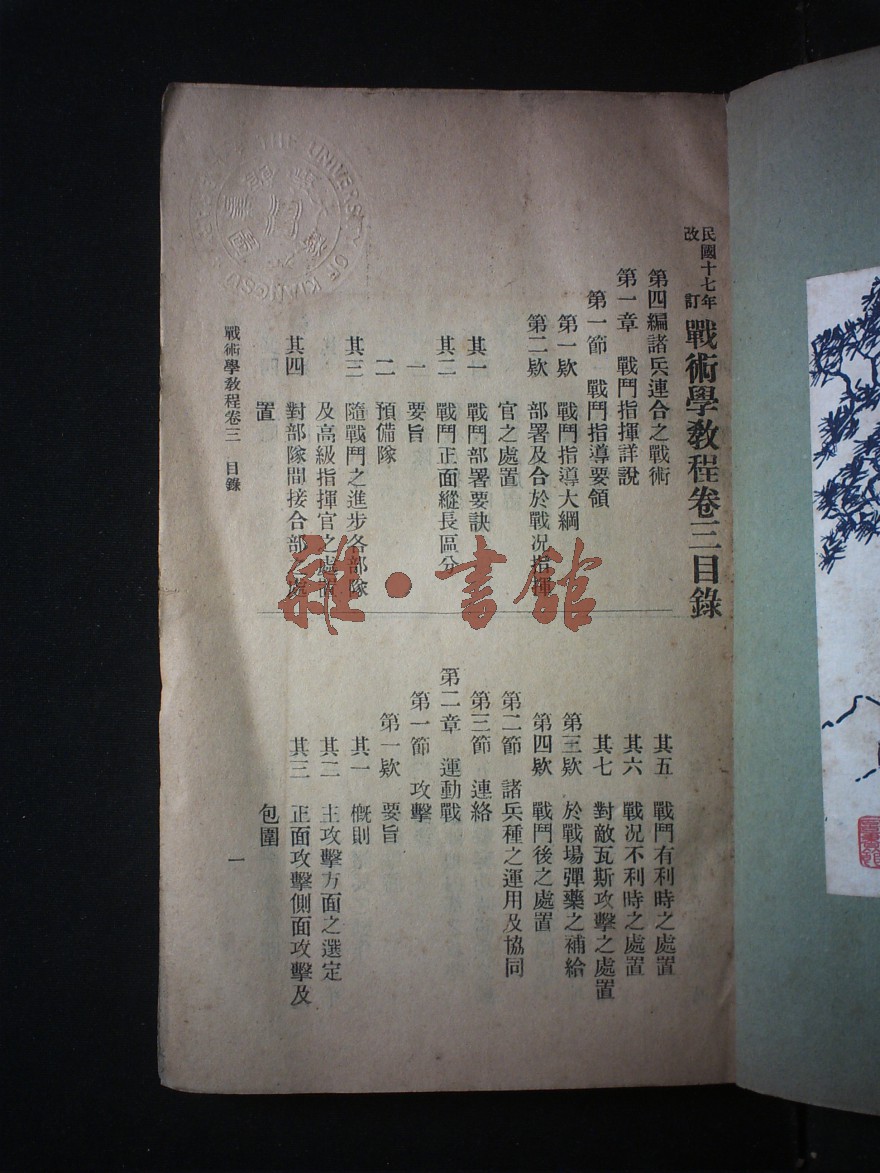 民國十七年改訂 戰術學敎程卷三目錄
第四編諸兵連合之戰術
第一章 戰鬥指揮詳說
第一節 戰鬥指導要領
第一欵 戰鬥指導大綱
第二欵 部署及合於戰況指揮
官之處置
其一 戰鬥部署要訣
其二 戰鬥正面縱長區分
一 要旨
二 預備隊
其三 隨戰鬥之進步各部隊
及高級指揮官之處置
其四 對部隊間接合部之處
置
其五 戰鬥有利時之處置
其六 戰況不利時之處置
其七 對敵瓦斯攻擊之處置
第三欵 於戰場彈藥之補給
第四欵 戰鬥後之處置
第二節 諸兵種之運用及協同
第三節 連絡
第二章 運動戰
第一節 攻擊
第一欵 要旨
其一 概則
其二 主攻擊方面之選定
其三 正面攻擊側面攻擊及
包圍
戰術學敎程卷三 目錄
一
雜·書館
THE UNIVERSITY OF KIANGSU